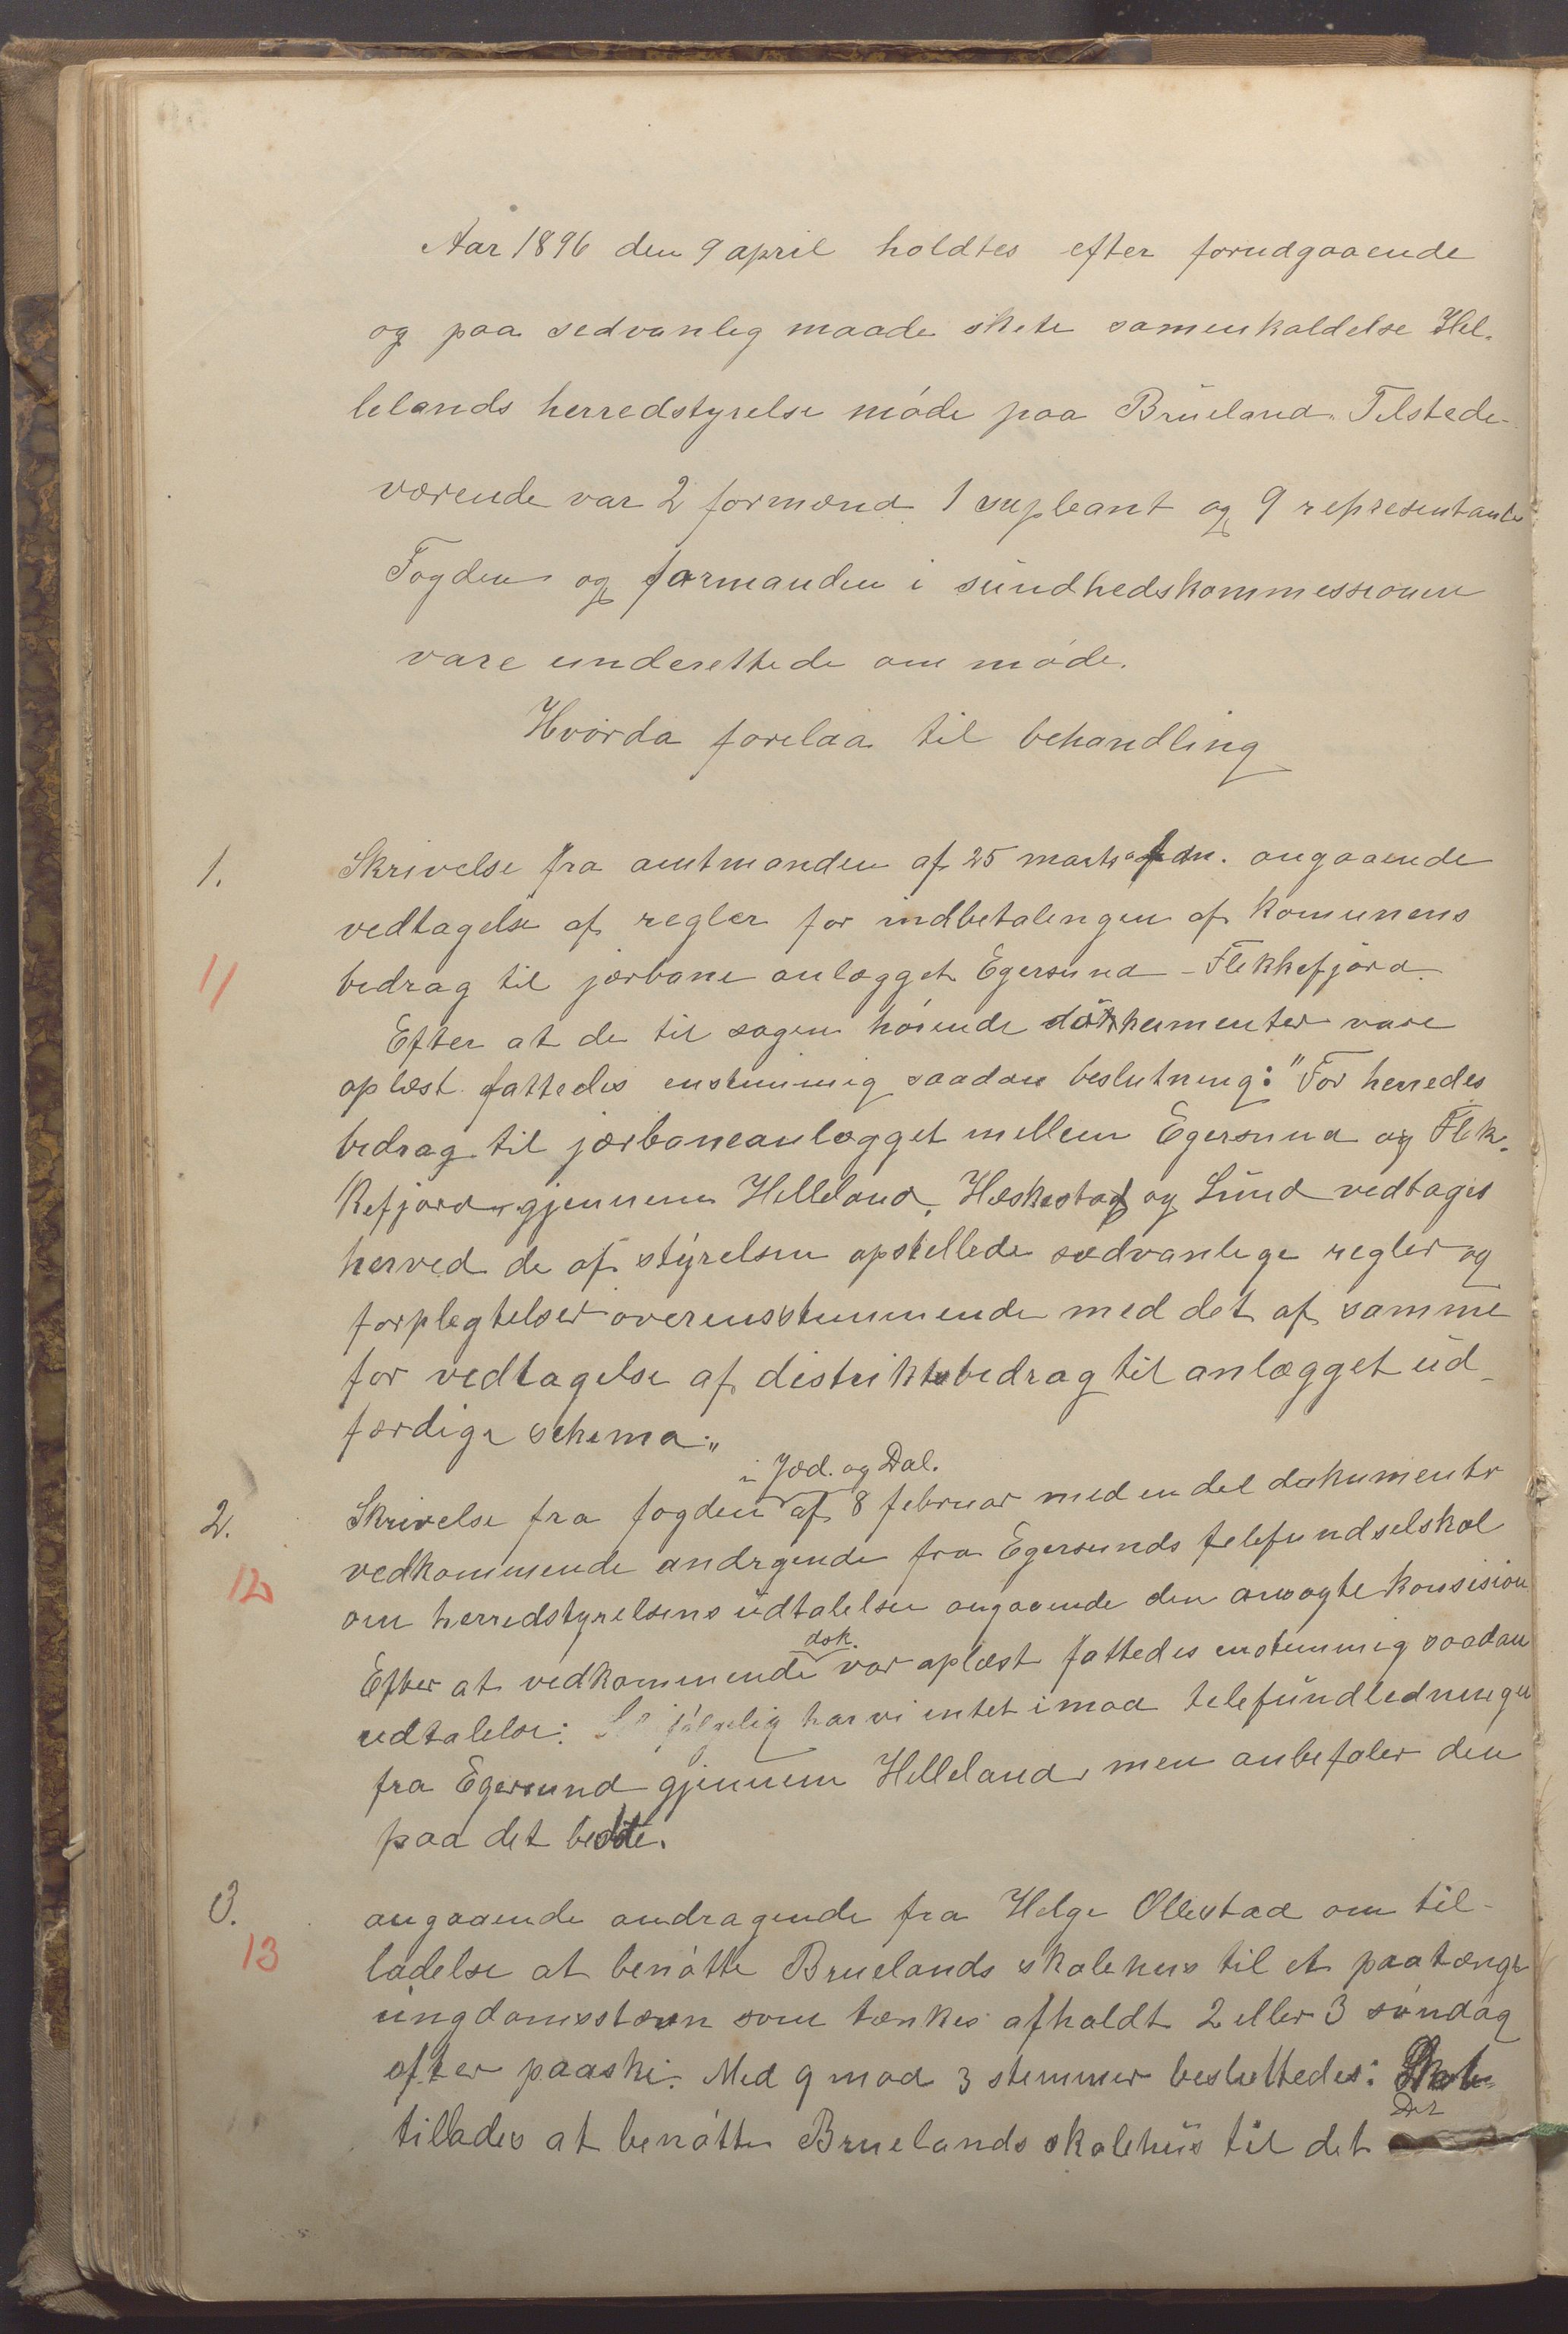 Aar 1896 den 9 april holdtes efter forudgaaende
og paa sedvanlig maade skete samenkaldelse Hel-
lelands herredstyrelse møde paa Brüeland. Tilstede-
værende var 2 formænd 1 supleant og 9 representanter
Fogden og formanden i sündhedskommessionen
vare underettede om møde.
Hvorda forelaa til behandling
1. Skrivelse fra amtmanden af 25 marts angaaende
vedtagelse af regler for indbetalingen af komunens
11 bedrag til jærbane anlægget Egersund - Flekkefjord.
Efter at de til sagen hørende dokkumenter vare
oplæst fattedes enstemmig saadan beslutning: "For herredes
bedrag til jærbaneanlægget mellem Egersund og Flek-
kefjord gjennem Helleland, Heskestad og Lünd vedtages
herved de af styrelsen opstellede sædvanlige regler og
forplegtelser overensstemmende med det af samme
for vedtagelse af distriktsbedrag til anlægget üd-
færdige schema."
i Jæd. og Dal.
2. Skrivelse fra fogden af 8 februar med en del dokumenter
vedkommende andrgende fra Egersunds telefundselskal
12 om herredstyrelsens üdtalelse angaaende den ansøgte konsision
dok.
Efter at vedkommende var oplæst fattedes enstemmig saadan
udtalelse: har vi intet imod telefündledningen
fra Egersund gjennem Helleland, men anbefaler den
paa det bedste.
3. angaaende andragende fra Helge Ollestad om til-
13 ladelse at benøtte Bruelands skolehus til et paatængt
üngdomsstævn som tænkes afholdt 2 eller 3 søndag
efter paaske. Med 9 mod 3 stemmer besluttedes:
Det
tillades at benøtte Bruelands skolehüs til det